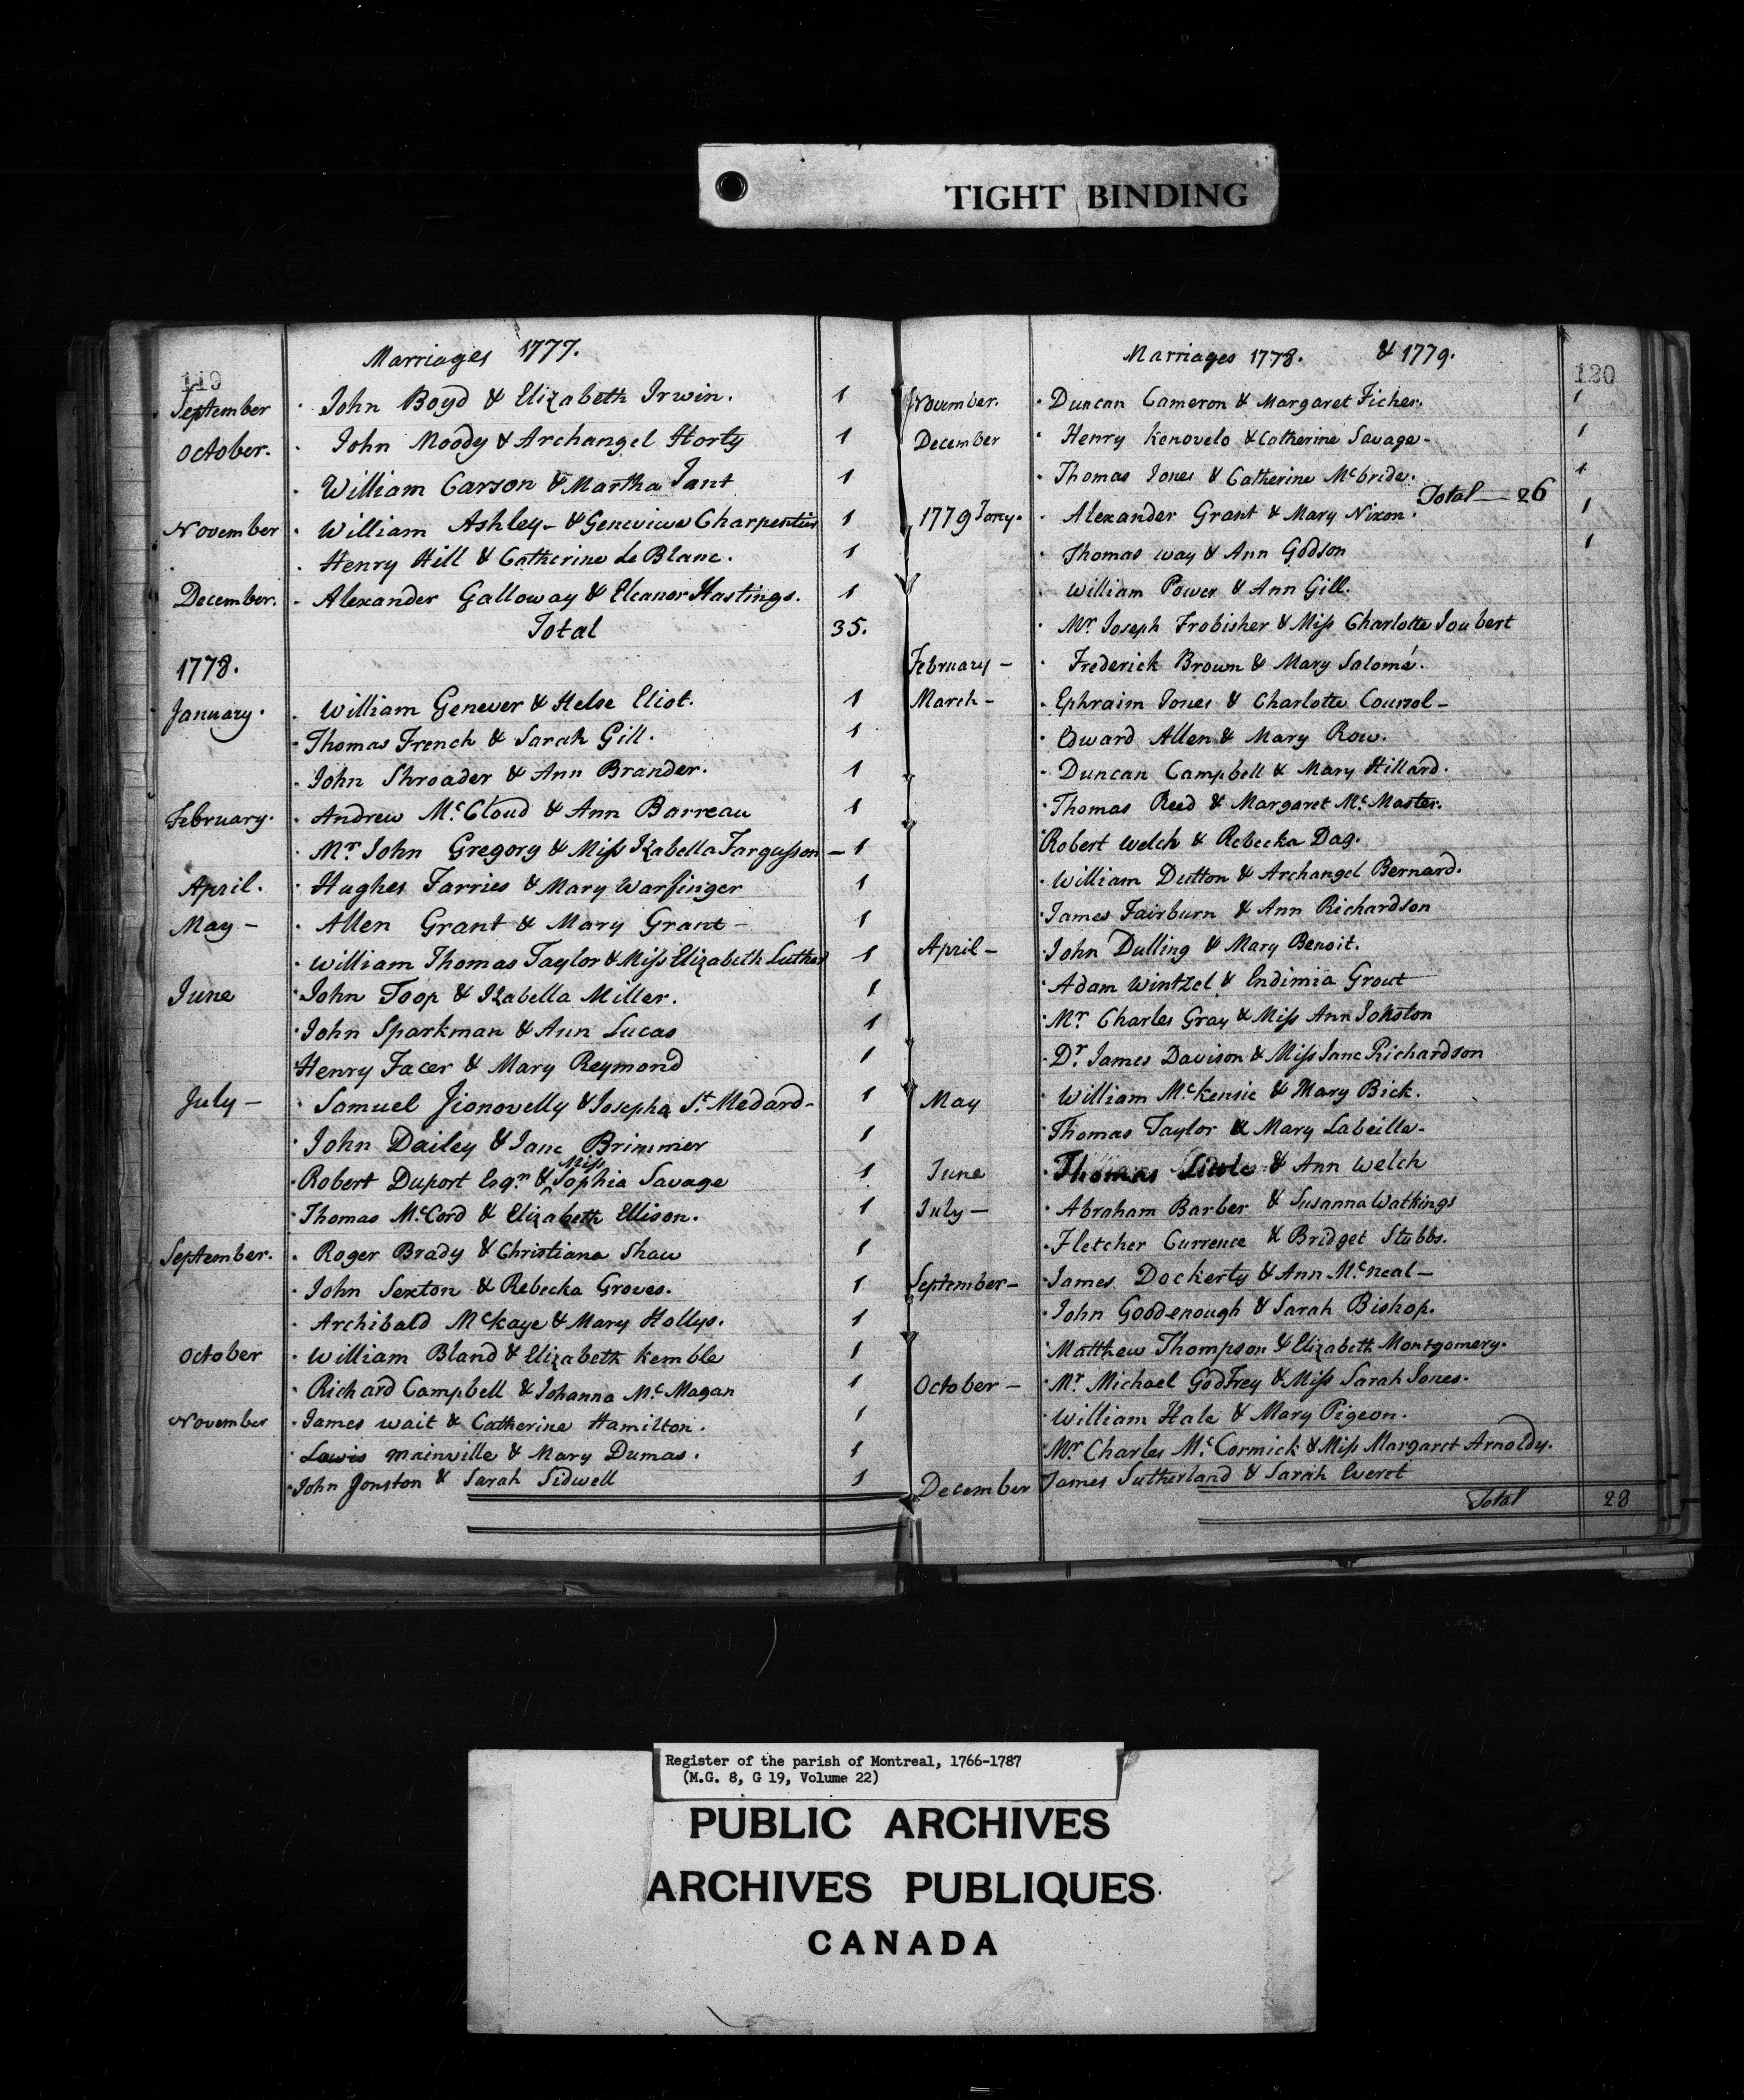 TIGHT BINDING
119
Marriages 1777.
September John Boyd & Elizabeth Irwin. 1
October. John Moody & Archangel Horty 1
William Carson & Martha Jant 1
November William Ashley - & Genevieve Charpentier 1
Henry Hill & Catherine LeBlanc. 1
December. Alexander Galloway & Eleanor Hastings. 1
Total 35.
1778.
January. William Genever & Helse Eliot. 1
Thomas French & Sarah Gill. 1
John Shroader & Ann Brander. 1
February. Andrew McCloud & Ann Barreau 1
Mr John Gregory & Miss Izabella Fargusson - 1
April. Hughes Farries & Mary Warfinger 1
May - Allen Grant & Mary Grant - 1
William Thomas Taylor & Miss Elizabeth Luther 1
June John Toop & Izabella Miller. 1
John Sparkman & Ann Lucas 1
Henry Facer & Mary Reymond 1
July - Samuel Jionovelly & Josepha St. Medard - 1
John Dailey & Jane Brimmer 1
Robert Duport Esqr. & Miss Sophia Savage 1
Thomas McCord & Elizabeth Ellison. 1
September. Roger Brady & Christiana Shaw 1
John Sexton & Rebecka Groves. 1
Archibald McKaye & Mary Hollys. 1
October William Bland & Elizabeth Kemble 1
Richard Campbell & Johanna Mc Magan 1
November James wait & Catherine Hamilton. 1
Lewis Mainville & Mary Dumas. 1
John Jonston & Sarah Sidwell 1
120
Marriages 1778. & 1779.
November. Duncan Cameron & Margaret Ficher. 1
December Henry Kenovelo & Catherine Savage - 1
Thomas Jones & Catherine Mcbride. 1
Total — 26
1779 Jany. Alexander Grant & Mary Nixon. 1
Thomas way & Ann Godson 1
William Power & Ann Gill.
Mr. Joseph Frobisher & Miss Charlotte Joubert
February - Frederick Brown & Mary Salomé.
March - Ephraim Jones & Charlotte Coursol -
Edward Allen & Mary Row.
Duncan Campbell & Mary Hillard.
Thomas Reed & Margaret Mc Master.
Robert Welch & Rebecka Day.
William Dutton & Archangel Bernard.
James Fairburn & Ann Richardson
April - John Dulling & Mary Benoit.
Adam Wintzel & Endimia Grout
Mr Charles Gray & Miss Ann Johston
Dr. James Davison & Miss Jane Richardson
May William McKensie & Mary Bick.
Thomas Taylor & Mary Labeille -
June Thomas & Ann Welch
July - Abraham Barber & Susanna Watkings
Fletcher Currence & Bridget Stubbs.
September - James Dockerty & Ann Mcneal -
John Goodenough & Sarah Bishop.
Matthew Thompson & Elizabeth Montgomery.
October - Mr Michael Godfrey & Miss Sarah Jones.
William Hale & Mary Pigeon.
Mr Charles McCormick & Miss Margaret Arnoldy.
December James Sutherland & Sarah Everet
Total 28
Register of the parish of Montreal, 1766-1787
(M.G. 8, G 19, Volume 22)
PUBLIC ARCHIVES
ARCHIVES PUBLIQUES
CANADA